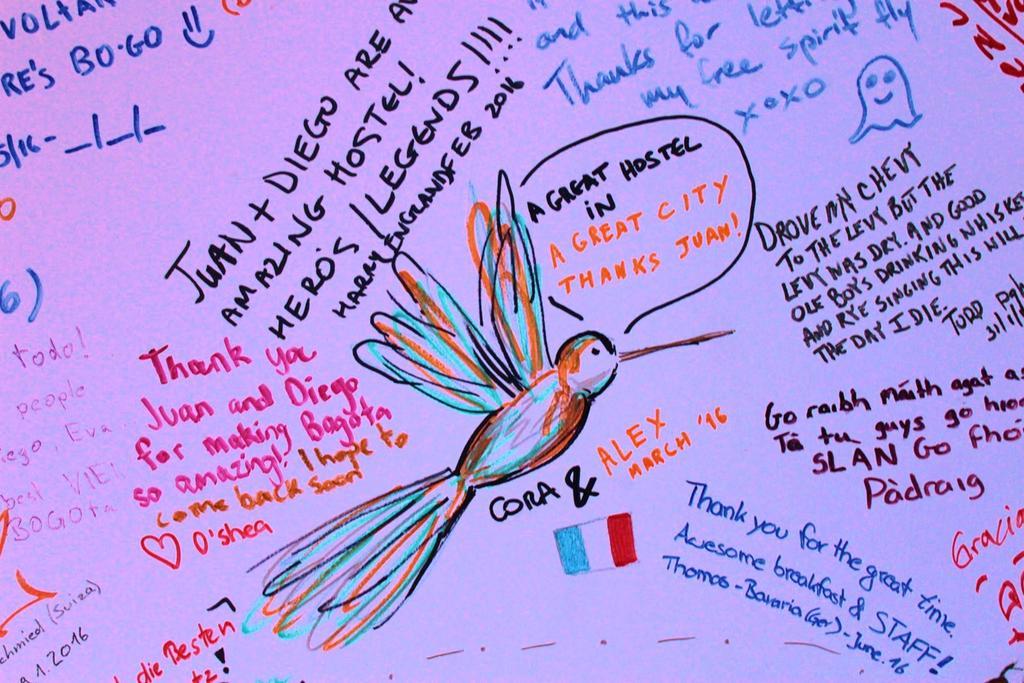 VOLTA
RE'S BO·GO
5/16-
JUAN + DIEGO ARE
AMAZING HOSTEL!
HERO'S / LEGENDS!!!!
HARRY ENGRAND FEB 2016
and this
Thanks for
my free spirit fly
xoxo
A GREAT HOSTEL
IN
A GREAT CITY
THANKS JUAN!
DROVE MY CHEVY
TO THE LEVY BUT THE
LEVY WAS DRY. AND GOOD
OLE BOYS DRINKING WHISKEY
AND RYE SINGING THIS WILL
THE DAY I DIE.
TODD
6)
todo!
people
Eva
VIE
BOGOTA
Thank you
Juan and Diego
for making Bagota
so amazing! I hope to
come back soon
O'shea
CORA & ALEX
MARCH '16
Go raibh máith agat
Tá tu guys go
SLAN Go
Pàdraig
Thank you for the great time.
Awesome breakfast & STAFF!
Thomas-Bavaria (Ger)-June. 16
(Suiza)
1.2016
die Besten